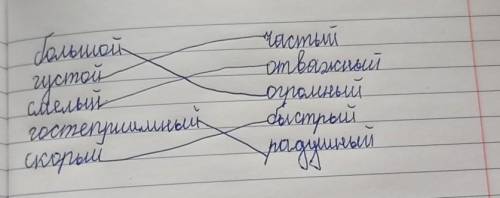 большой частый
густой отважный
смелый огромный
гостеприимный быстрый
скорый радушный